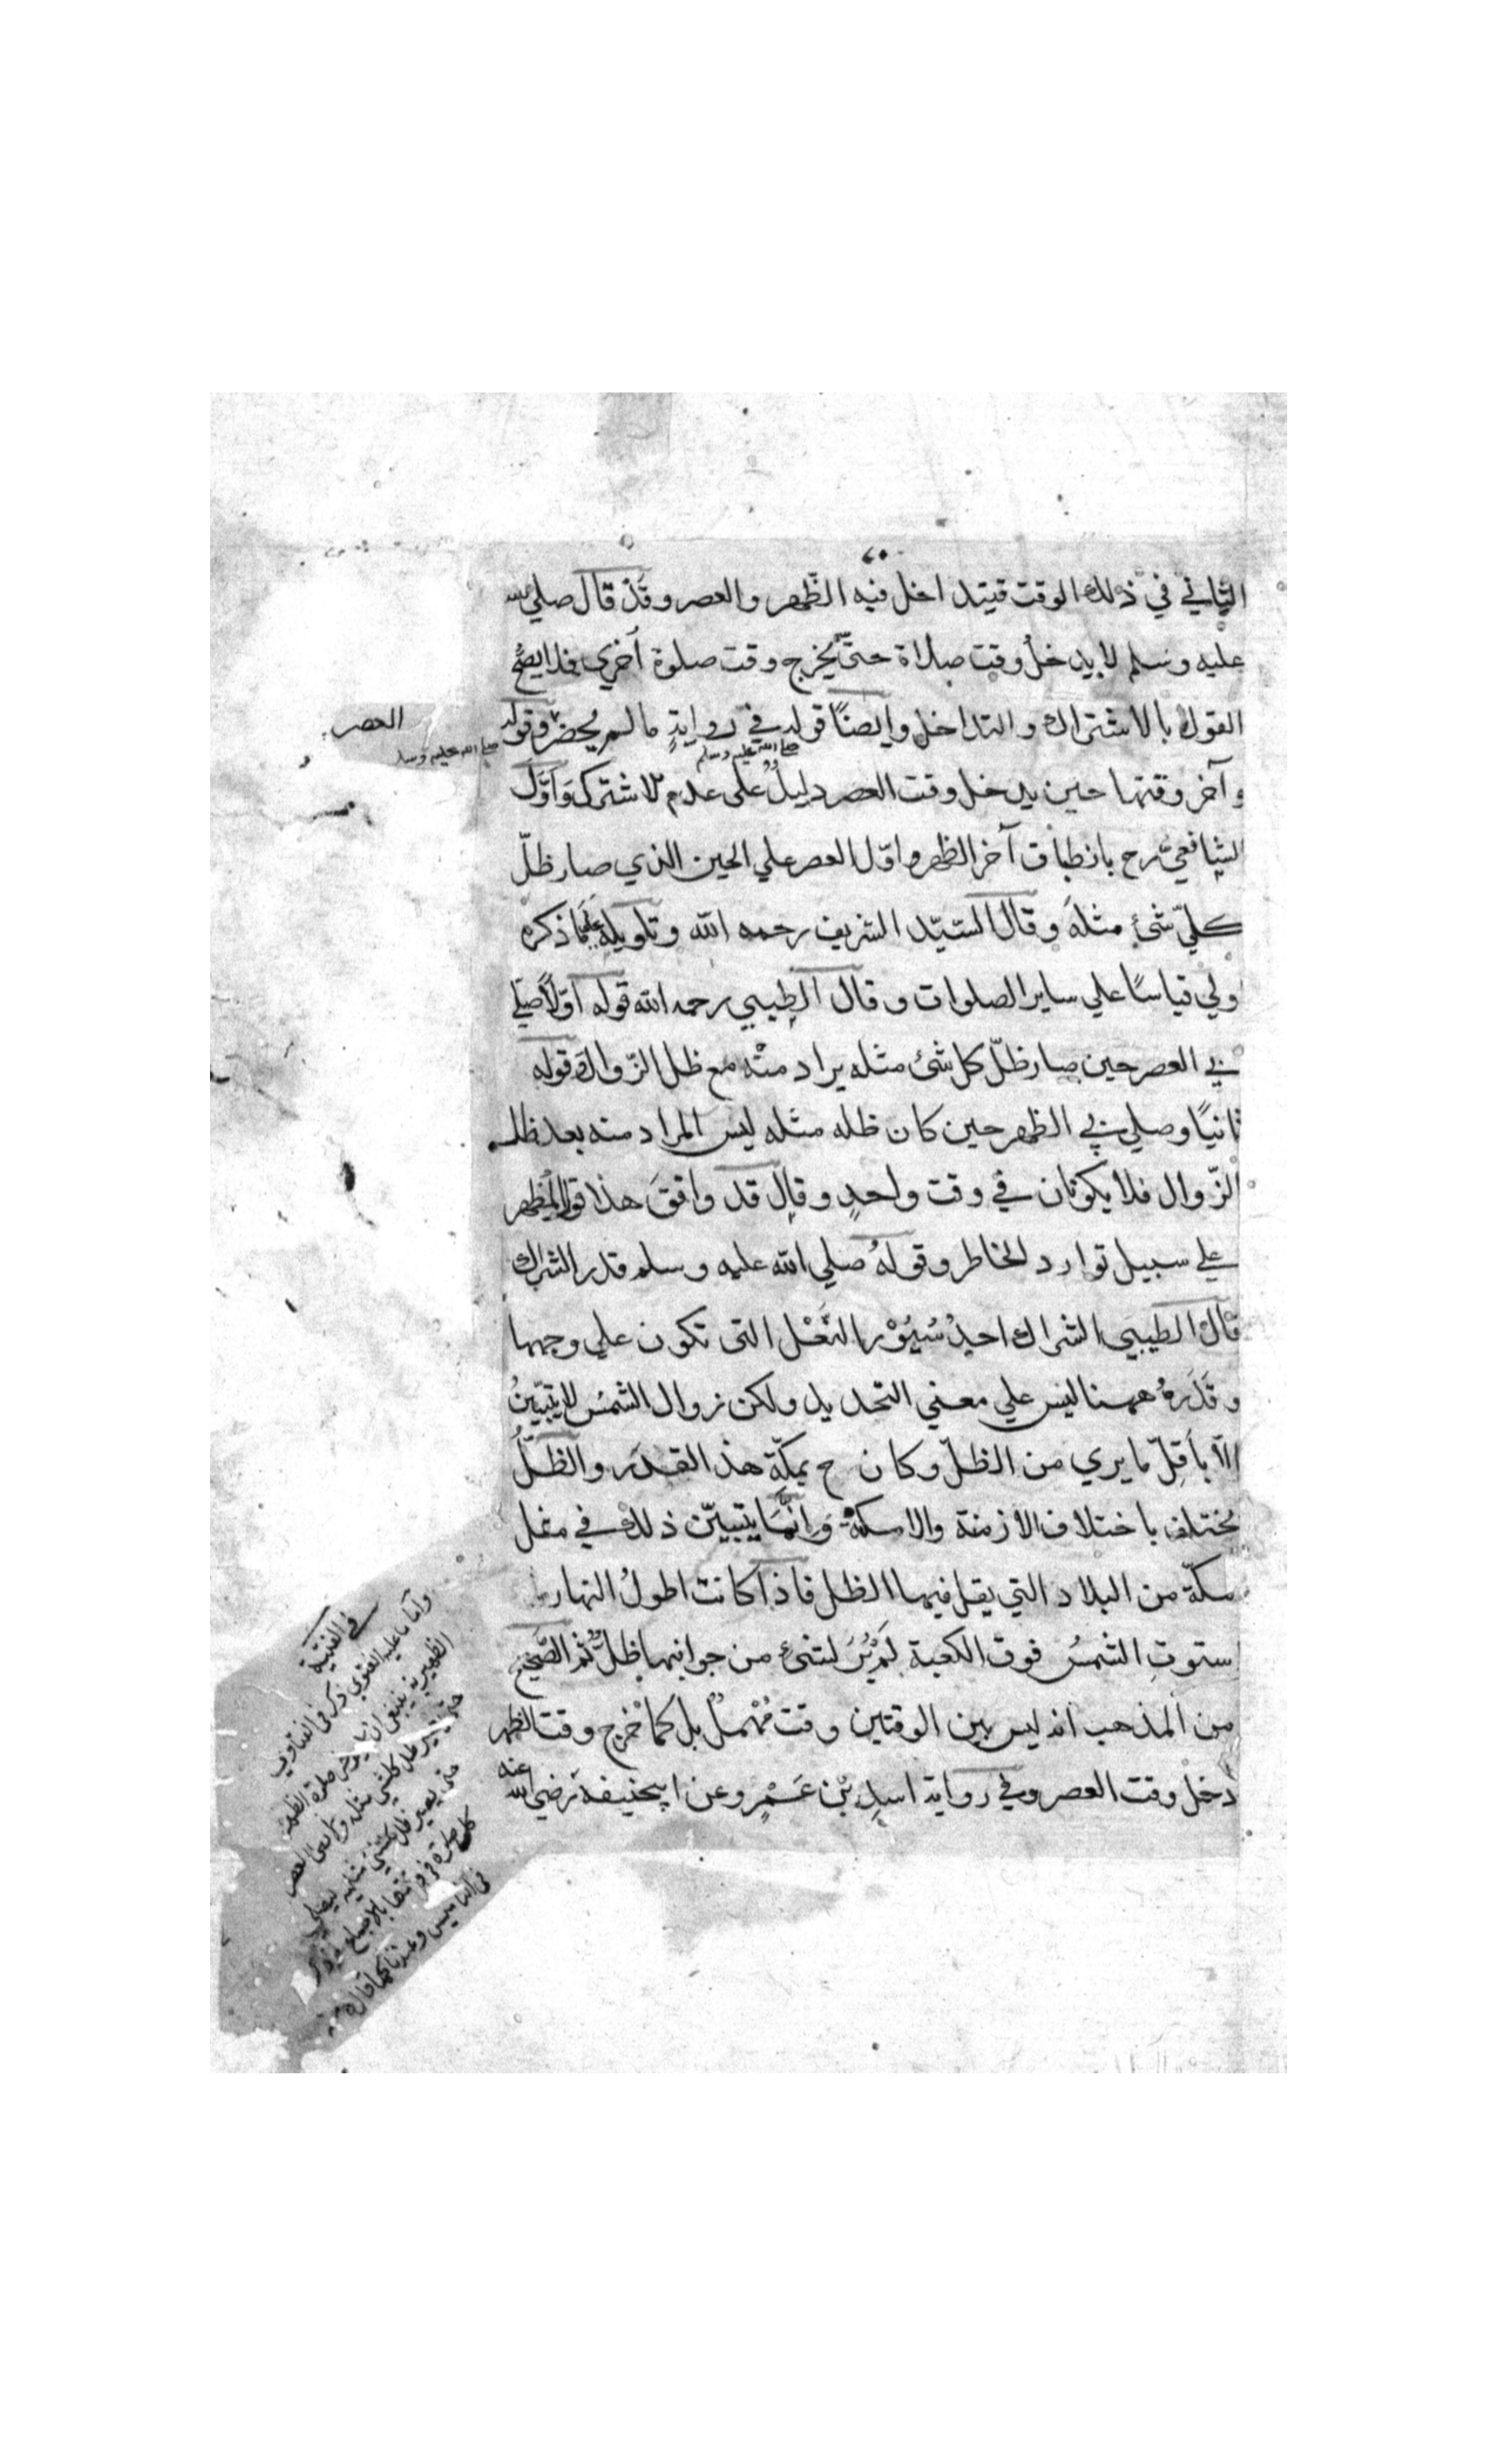 الثاني في ذلك الوقت فيتداخل فيه الظّهر والعصر وقد قال صلي الله
عليه وسلم لا يدخل وقت صلاة حتّي يخرج وقت صلوة أخري فلا يصحّ
القول بالاشتراك والتداخل وايضًا قوله في روايةٍ ما لم يحضر وقوله
العصر
صلي الله عليه وسلم
صلي الله عليه وسلم
وآخر وقتها حين يدخل وقت العصر دليلٌ على عدم الاشتراك وَاَوَّلَ
الشافعيّ رح بانطباق آخر الظهر واوّل العصر علي الحين الذي صار ظلّ
كلّ شئٍ مثلَه وقال السيّد الشريف رحمه الله وتاويله علي ما ذكره
ولي قياسًا علي ساير الصلوات وقال الطيبي رحمه الله قوله اوّلاً صلّي
بي العصر حين صار ظلّ كل شئ مثله يراد منه مع ظل الزّوال وقوله
ثانيًا وصلي بي الظهر حين كان ظله مثله ليس المراد منه بعد ظل
الزّوال فلا يكونان في وقت واحدٍ وقال قد وافقَ هذا قول المظهر
علي سبيل توارد الخاطر وقولهُ صلي الله عليه وسلم قدر الشراك
قال الطيبي الشراك احدُ سُيُوْر النَّعْل التى تكون علي وجهها
وقَدَرهُ ههنا ليس علي معني التحديد ولكن زوال الشمسُ لا يتبيّنُ
الاّ بأقلّ ما يري من الظلّ وكان ح بمكّة هذ القدر والظلُّ
يختلف باختلاف الازمنة والامكنة وَاِنَّمَا يتبيّن ذلك في مثل
مكّة من البلاد التي يقل فيها الظل فاذا كانت اطولُ النهار
ستوتِ الشمسُ فوق الكعبة لم يُرَ لشئٍ من جوانبها ظلٌّ ثم الصّحيح
من المذهب انه ليس بين الوقتين وقت مُهْمَلٌ بل كما خرج وقت الظهر
دخل وقت العصر وفي رواية اسدِ بْنِ عَمْرٍو عن ابيحنيفة رضي الله عنه
في القنية
وأما ما عليه الفتوي ذكر في الفتاوي
الظهيرية ينبغي ان لا يؤخر صلوة الظهر
حتى يصير ظل كل شي مثله ولا يصلي العصر
حتى يصير ظل كل شئ مثليه ليصلي
كل صلوة في وقتها بالاجماع